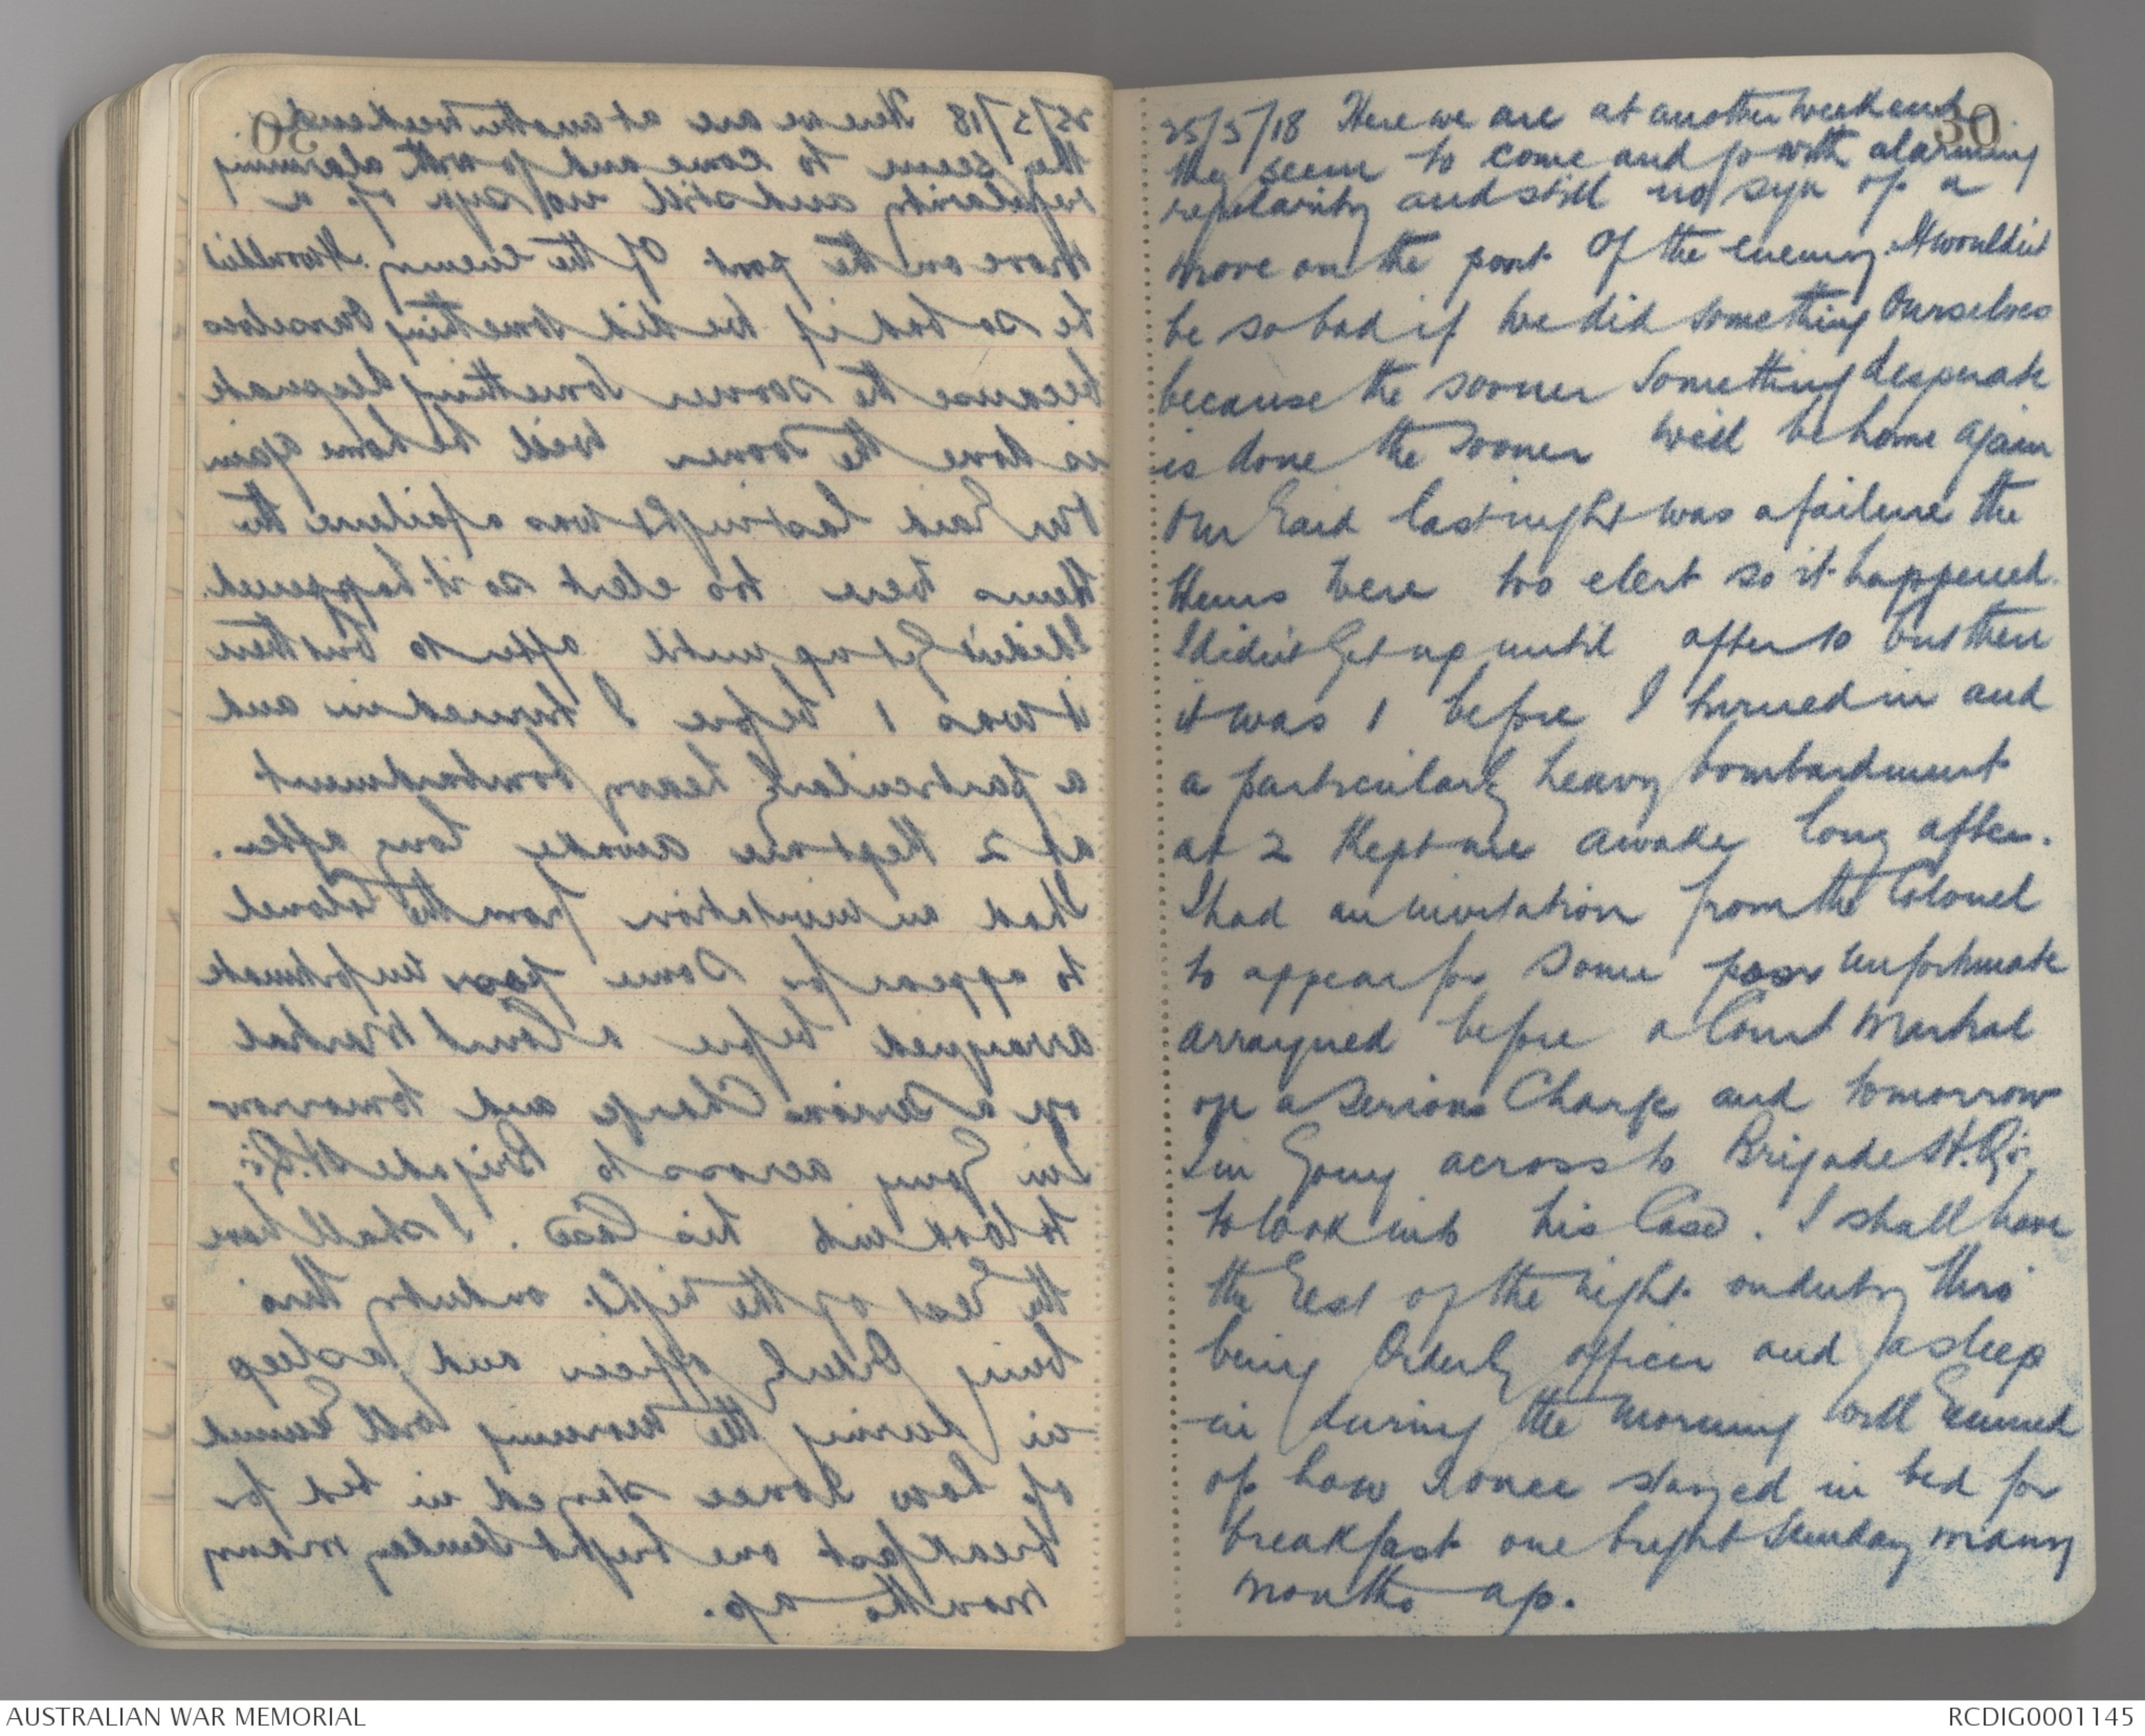 30
25/5/18 Here we are at another weekend
they seem to come and go with alarming
regularity and still no sign of a
move on the part of the enemy. It wouldn't
be so bad if we did something ourselves
because the sooner something desperate
is done the sooner will be home again
Our raid last night was a failure the
Huns were too elert so it happened.
I didn't get up until after 10 but then
it was 1 before I turned in and
a particularly heavy bombardment
at 2 kept me awake long after.
I had an invitation from the Colonel
to appear for some poor unfortunate
arraigned before a Court Martial
on a serious charge and tomorrow
I'm going across to Brigade H.Qrs.
to look into his case. I shall have
the rest of the night on duty this
being Orderly officer and a sleep
in during the morning will remind
of how I once stayed in bed for
breakfast one bright Sunday many
months ago.
AUSTRALIAN WAR MEMORIAL
RCDIG0001145